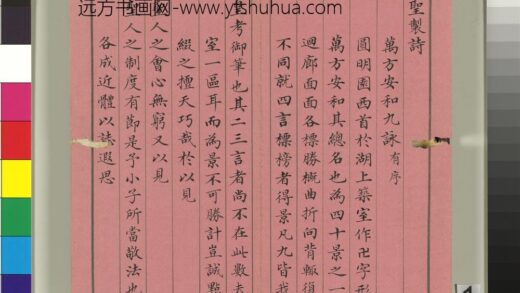 远方书画网-www.yfshuhua.com
聖製詩
萬方安和九詠有序
圓明園西首於湖上築室作卍字形
萬方安和其總名也為四十景之一
迴廊面面各標勝概曲折向背輙復
不同就四言標榜者得景凡九皆我
考御筆也其二三言者尚不在此數夫
室一區耳而為景不可勝計豈誠點
綴之擅天巧哉於以見
人之會心無窮又以見
人之制度有節是予小子所當敬法也
各成近體以誌遐思